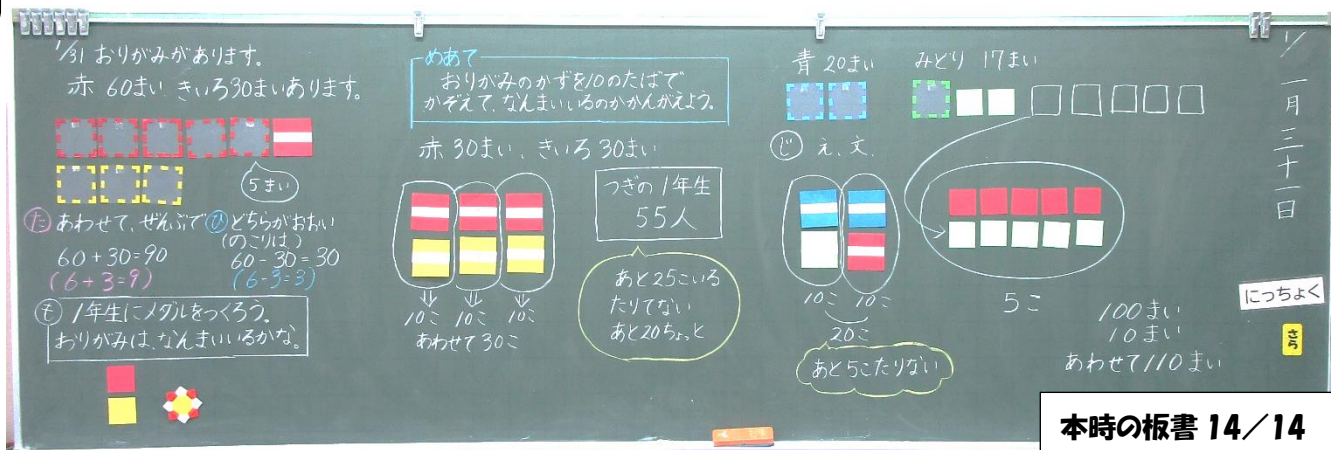 1/31 おりがみがあります。
赤 60まい きいろ30まいあります。
5まい
た あわせて、ぜんぶで
60+30=90
(6+3=9)
ひ どちらがおおい
(のこりは)
60-30=30
(6-3=3)
も 1年生にメダルをつくろう。
おりがみは、なんまいいるかな。
めあて
おりがみのかずを10のたばで
かぞえて、なんまいいるのかかんがえよう。
赤 30まい、きいろ 30まい
10こ 10こ 10こ
あわせて30こ
つぎの1年生
55人
あと25こいる
たりてない
あと20ちょっと
青 20まい
みどり 17まい
じ え、文、
10こ 10こ
20こ
あと5こたりない
5こ
100まい
10まい
あわせて110まい
1/
一月三十一日
にっちょく
さら
本時の板書 14/14